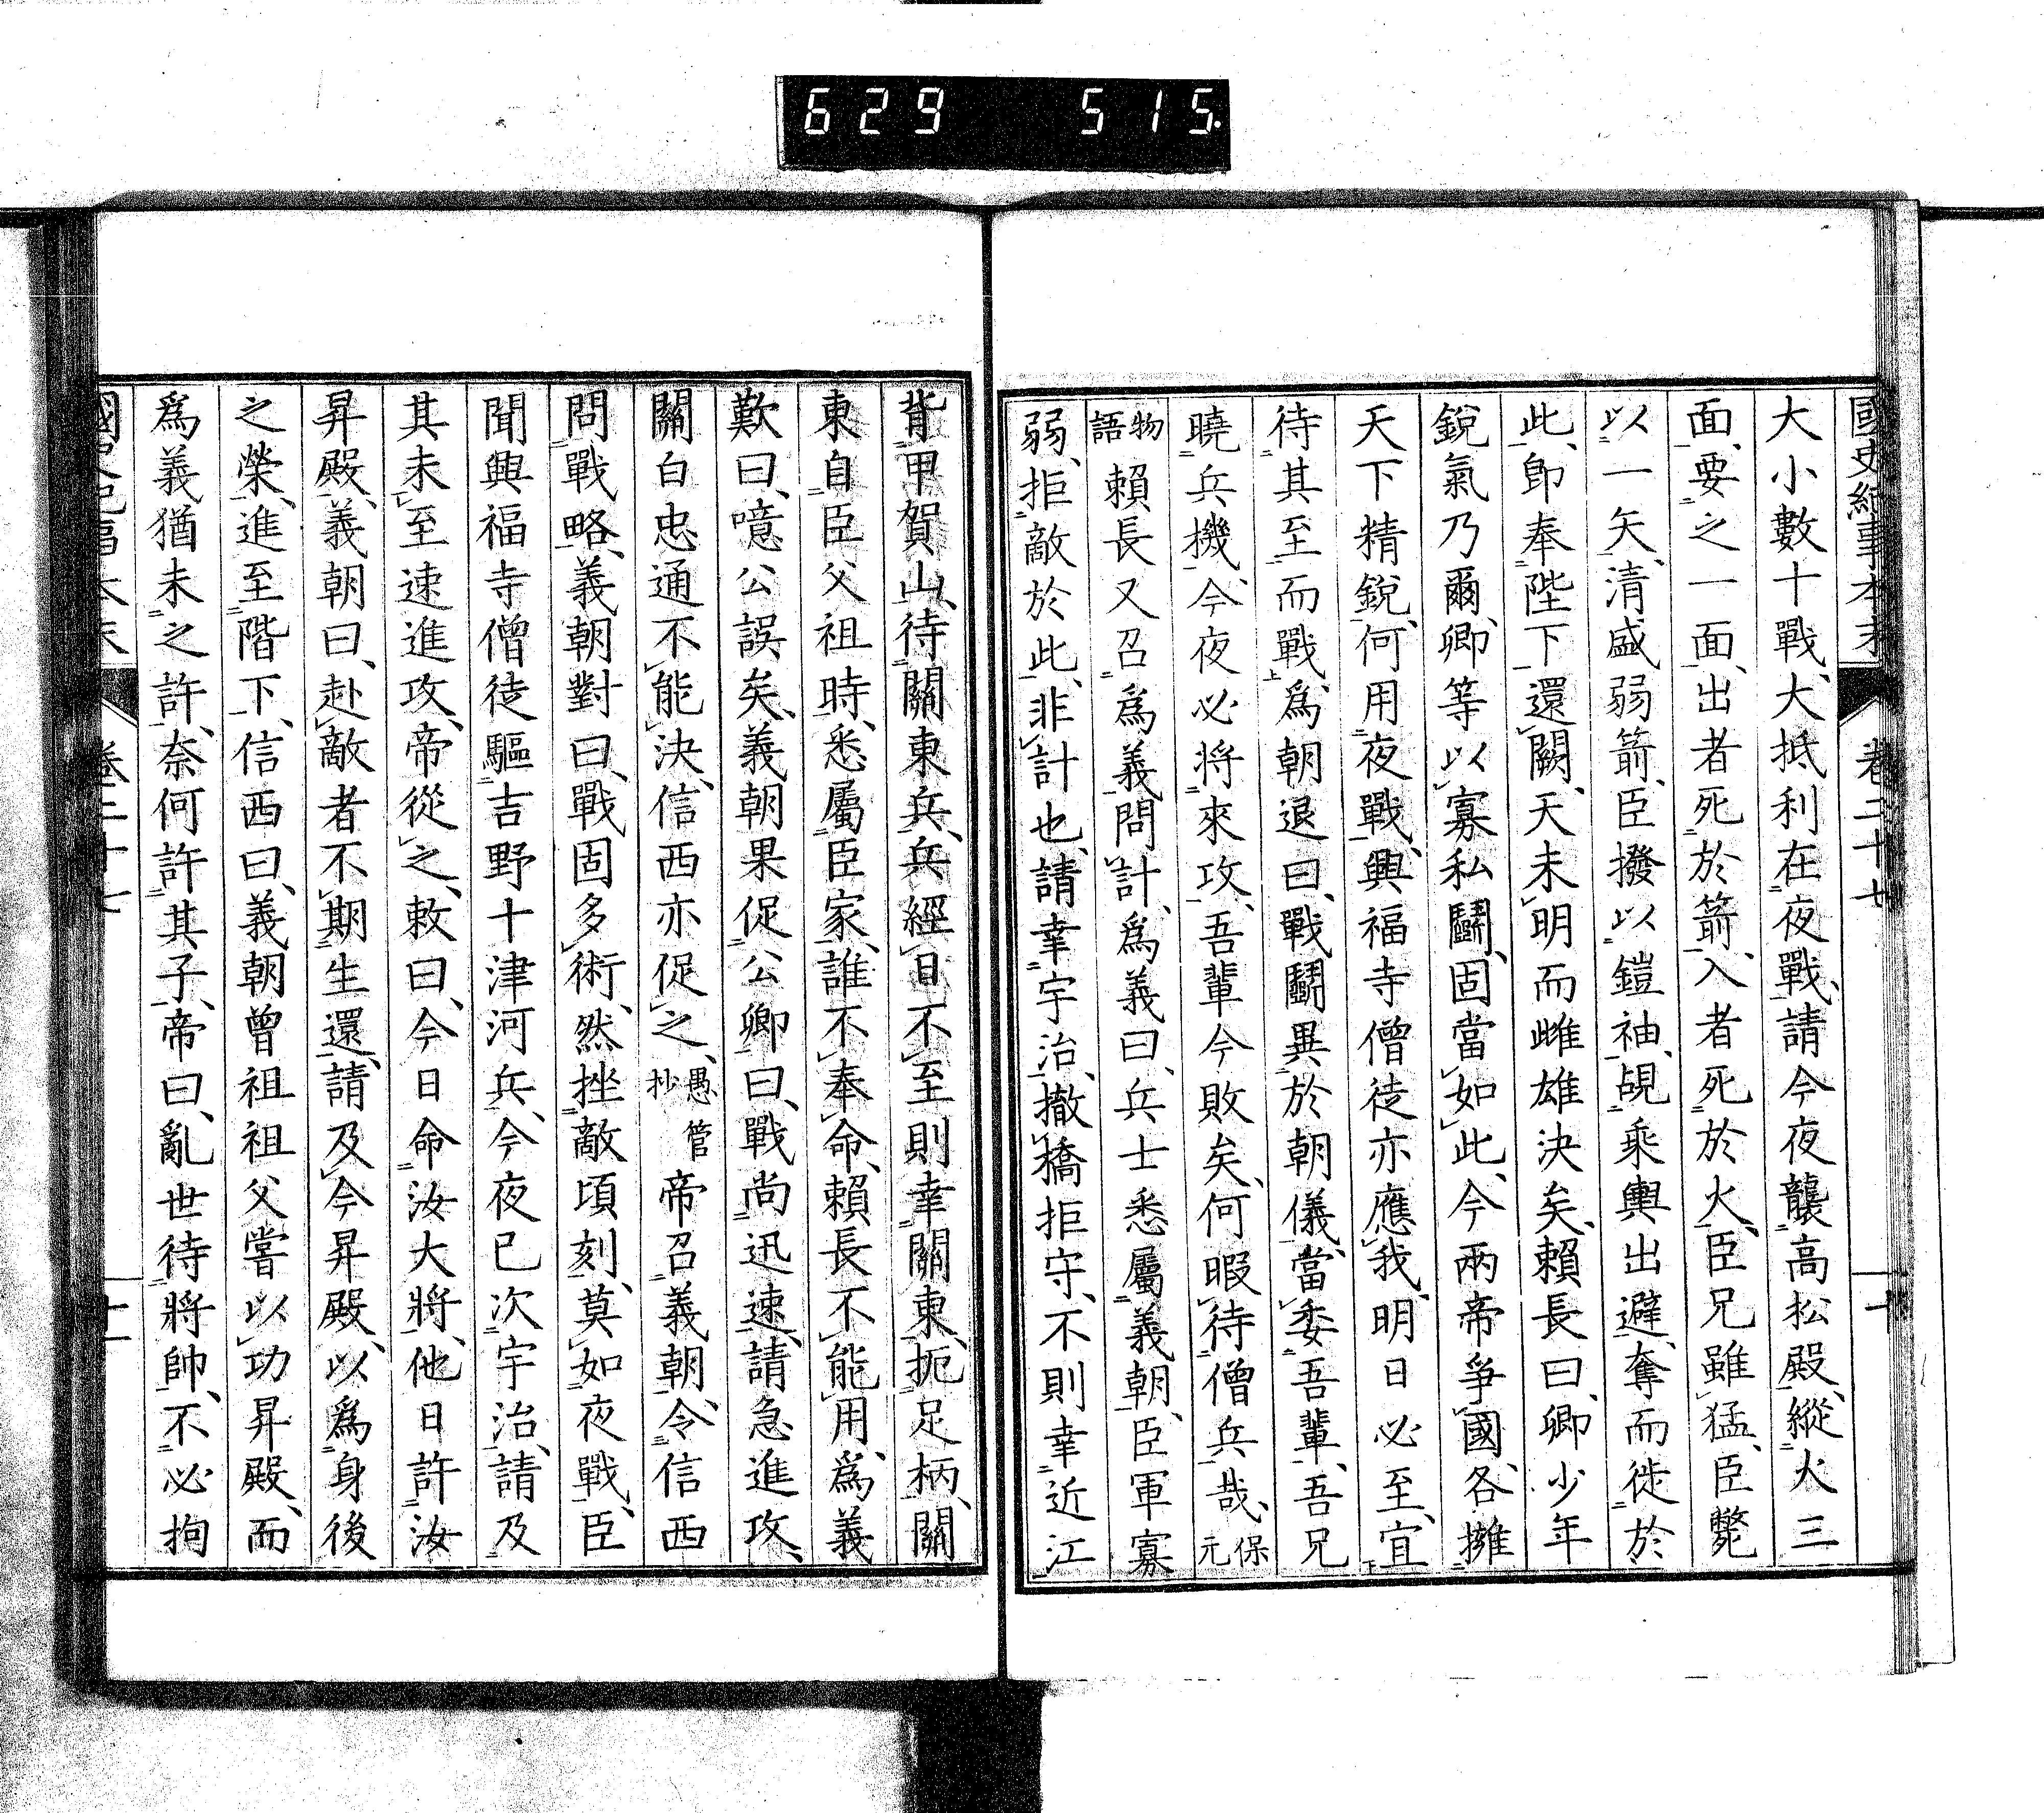 629 515.
國史紀事本末 卷二十七 十
大小數十戰、大抵利在夜戰、請今夜襲高松殿、縱火三
面、要之一面、出者死於箭、入者死於火、臣兄雖猛、臣斃
以一矢、清盛弱箭、臣撥以鎧袖、覘乘輿出避、奪而徙於
此、卽奉陛下還闕、天未明而雌雄決矣、賴長曰、卿少年
銳氣乃爾、卿等以寡私鬭、固當如此、今兩帝爭國、各擁
天下精銳、何用夜戰、興福寺僧徒亦應我、明日必至、宜
待其至而戰、爲朝退曰、戰鬭異於朝儀、當委吾輩、吾兄
曉兵機、今夜必將來攻、吾輩今敗矣、何暇待僧兵哉、保元
物語 賴長又召爲義問計、爲義曰、兵士悉屬義朝、臣軍寡
弱、拒敵於此、非計也、請幸宇治、撤橋拒守、不則幸近江
背甲賀山、待關東兵、兵經日不至則幸關東、扼足柄、關
東自臣父祖時、悉屬臣家、誰不奉命、賴長不能用、爲義
歎曰、噫公誤矣、義朝果促公卿曰、戰尚迅速、請急進攻、
關白忠通不能決、信西亦促之、愚管抄 帝召義朝、令信西
問戰略、義朝對曰、戰固多術、然挫敵頃刻、莫如夜戰、臣
聞興福寺僧徒驅吉野十津河兵、今夜已次宇治、請及
其未至速進攻、帝從之、敕曰、今日命汝大將、他日許汝
昇殿、義朝曰、赴敵者不期生還、請及今昇殿、以爲身後
之榮、進至階下、信西曰、義朝曾祖祖父嘗以功昇殿、而
爲義猶未之許、奈何許其子、帝曰、亂世待將帥、不必拘
國史紀事本末 卷二十七 十一